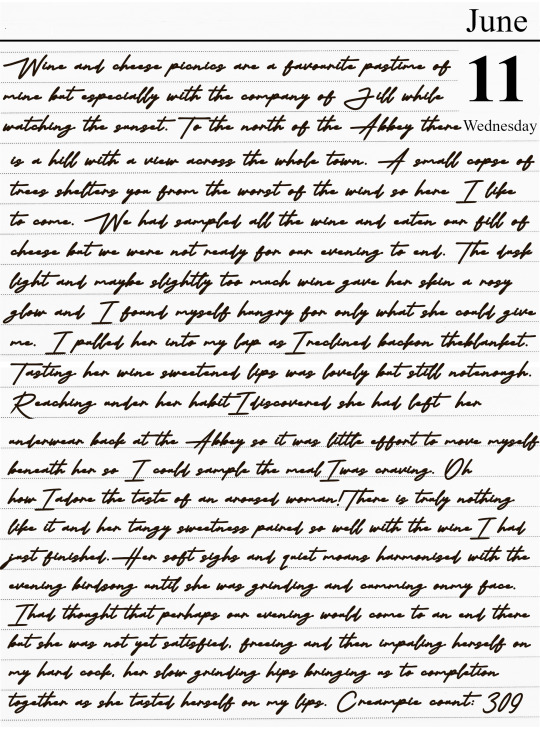 June
11
Wednesday
Wine and cheese picnics are a favourite pastime of
mine but especially with the company of Jill while
watching the sunset. To the north of the Abbey there
is a hill with a view across the whole town. A small copse of
trees shelters you from the worst of the wind so here I like
to come. We had sampled all the wine and eaten our fill of
cheese but we were not ready for our evening to end. The dusk
light and maybe slightly too much wine gave her skin a rosy
glow and I found myself hungry for only what she could give
me. I pulled her into my lap as I reclined backon theblanket.
Tasting her wine sweetened lips was lovely but still notenough.
Reaching under her habit I discovered she had left her
underwear back at the Abbey so it was little effort to move myself
beneath her so I could sample the meal Iwas craving. Oh
how Iadore the taste of an aroused woman! There is truly nothing
like it and her tangy sweetness paired so well with the wine I had
just finished. Her soft sighs and quiet moans harmonised with the
evening birdsong until she was grinding and cumming onmy face.
Ihad thought that perhaps our evening would come to an end there
but she was not yet satisfied, freeing and then impaling herself on
my hard cock, her slow grinding hips bringing us to completion
together as she tasted herself on my lips. Creampie count: 309